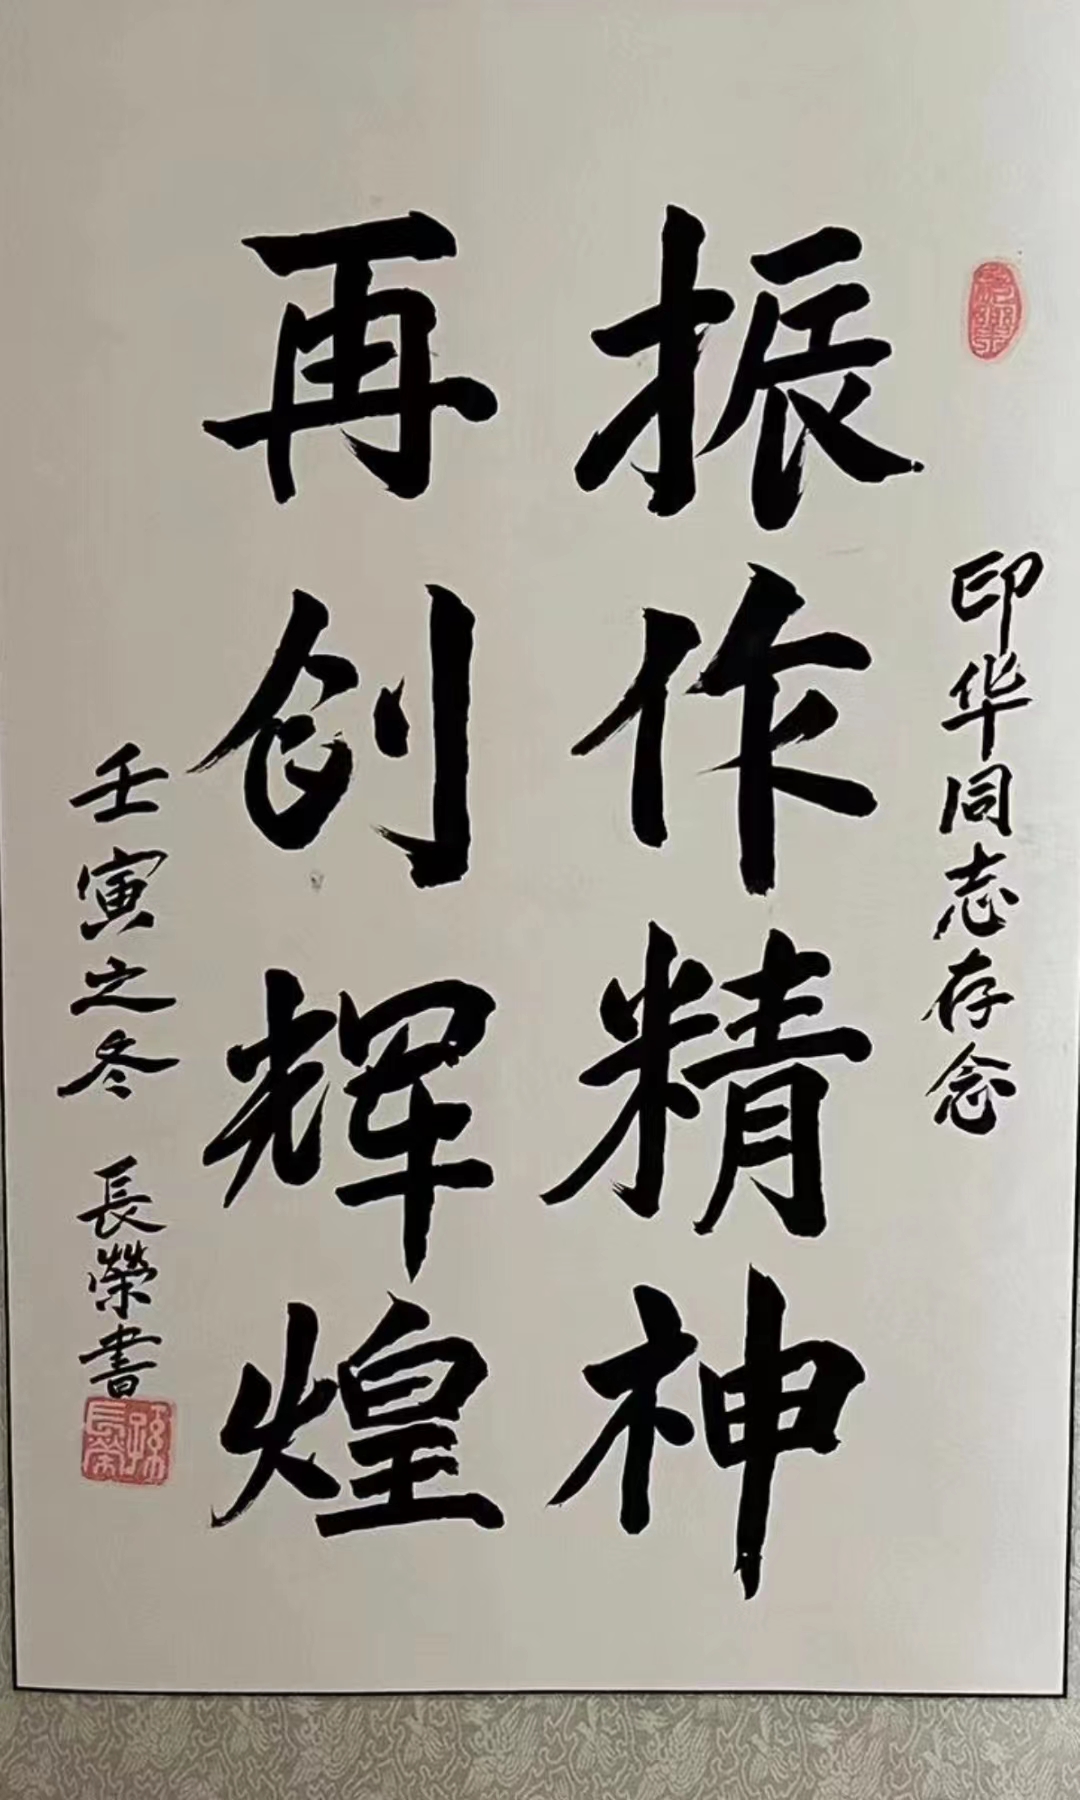 印华同志存念
振作精神
再创辉煌
壬寅之冬 長榮書
孫長榮